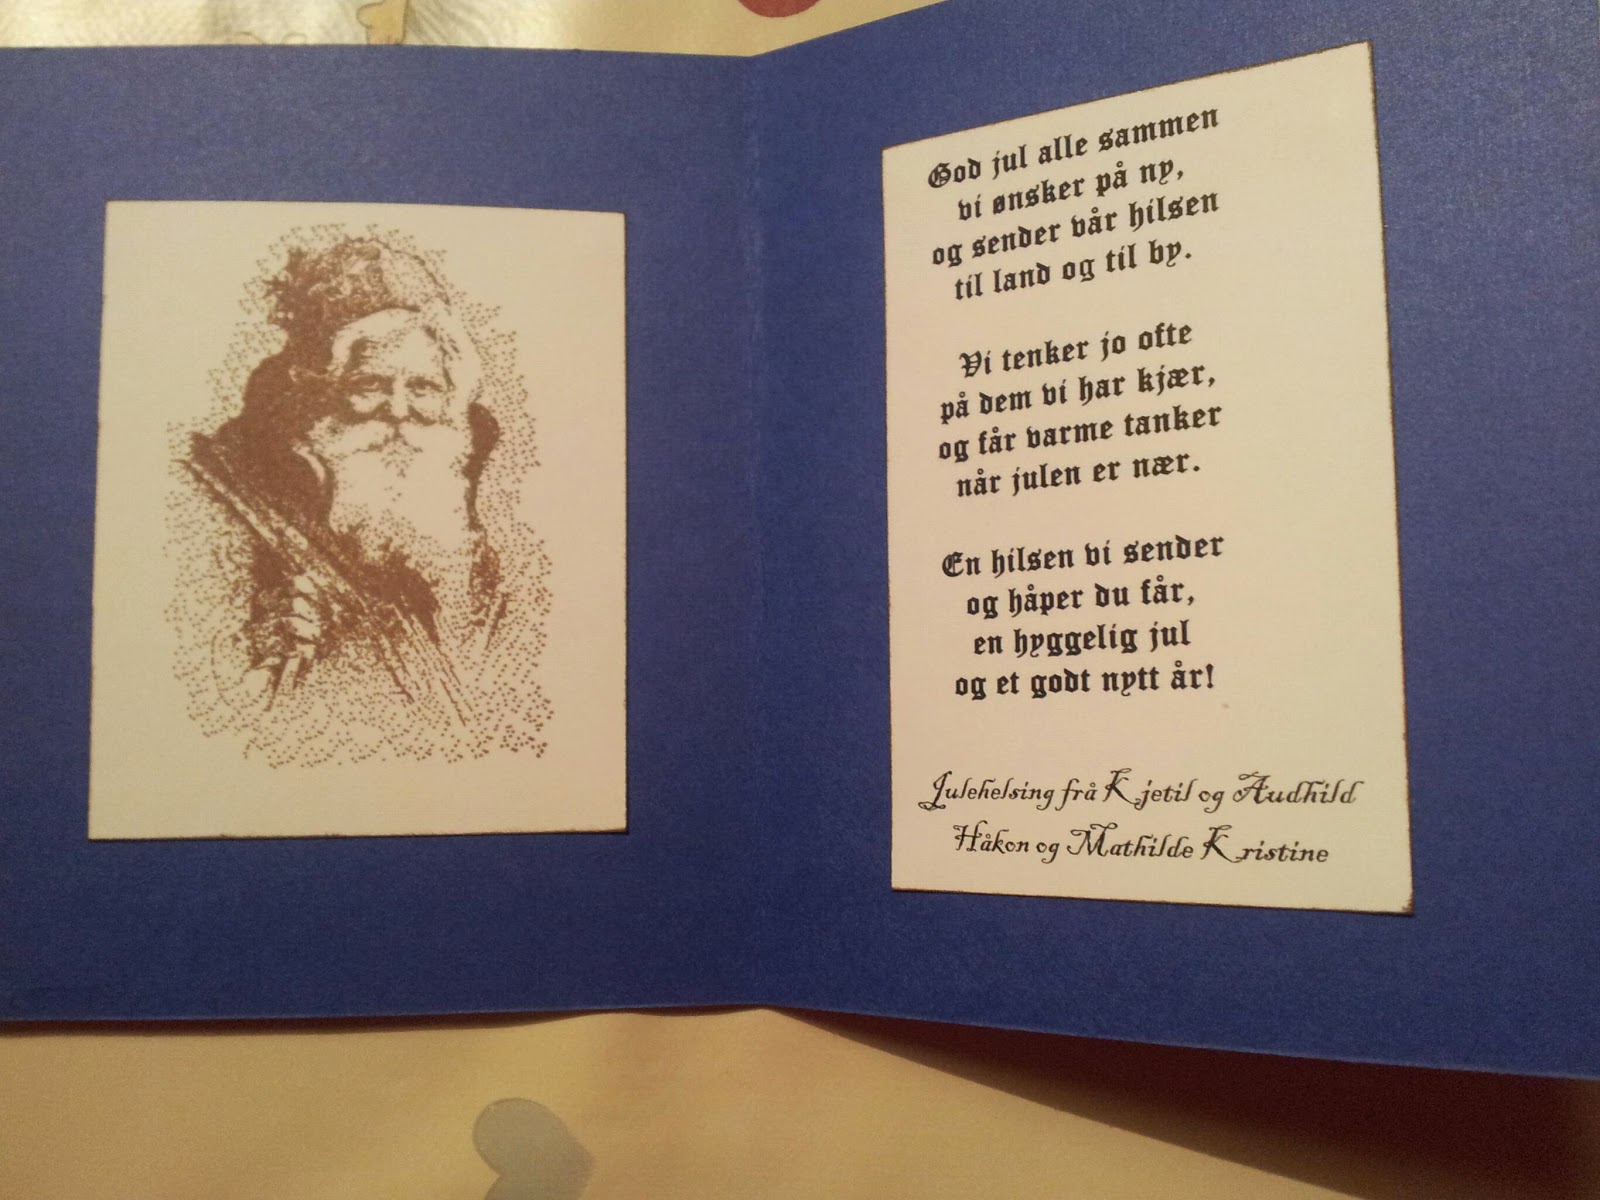 God jul alle sammen
vi ønsker på ny,
og sender vår hilsen
til land og til by.
Vi tenker jo ofte
på dem vi har kjær,
og får varme tanker
når julen er nær.
En hilsen vi sender
og håper du får,
en hyggelig jul
og et godt nytt år!
Julehelsing frå Kjetil og Audhild
Håkon og Mathilde Kristine